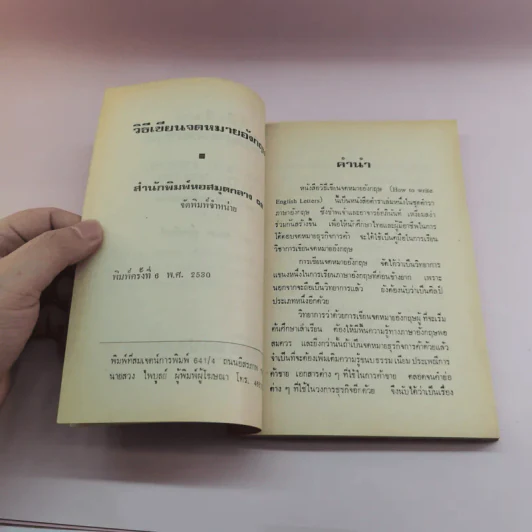 วิธีเขียนจดหมายอังกฤษ
สำนักพิมพ์หอสมุดกลาง
จัดพิมพ์จำหน่าย
พิมพ์ครั้งที่ 6 พ.ศ. 2530
พิมพ์ที่สมเจตน์การพิมพ์ 641/4 ถนนอิสรภาพ
นายสวง ไพบูลย์ ผู้พิมพ์ผู้โฆษณา โทร.
คำนำ
หนังสือวิธีเขียนจดหมายอังกฤษ (How to write
English Letters) นี้เป็นหนังสือตำราเล่มหนึ่งในชุดตำรา
ภาษาอังกฤษ ซึ่งข้าพเจ้าและอาจารย์อภินันท์
ร่วมกันสร้างขึ้น เพื่อให้นักศึกษาไทยและผู้มีอาชีพในการ
โต้ตอบจดหมายธุรกิจการค้า จะได้ใช้เป็นคู่มือในการเรียน
วิชาการเขียนจดหมายอังกฤษ
การเขียนจดหมายอังกฤษ จัดได้ว่าเป็นวิทยาการ
แขนงหนึ่งในการเรียนภาษาอังกฤษที่ค่อนข้างยาก เพราะ
นอกจากจะถือเป็นวิทยาการแล้ว ยังต้องนับว่าเป็นศิลป์
ประเภทหนึ่งอีกด้วย
วิทยาการว่าด้วยการเขียนจดหมายอังกฤษผู้ที่จะเริ่ม
ต้นศึกษาเล่าเรียน ต้องให้มีพื้นความรู้ทางภาษาอังกฤษพอ
สมควร และยิ่งกว่านั้นถ้าเป็นจดหมายธุรกิจการค้าด้วยแล้ว
จำเป็นที่จะต้องเพิ่มเติมความรู้ขนบธรรมเนียม ประเพณีการ
ค้าขาย เอกสารต่าง ๆ ที่ใช้ในการค้าขาย ตลอดจนคำย่อ
ต่าง ๆ ที่ใช้ในวงการธุรกิจอีกด้วย จึงนับได้ว่าเป็นเรื่อง